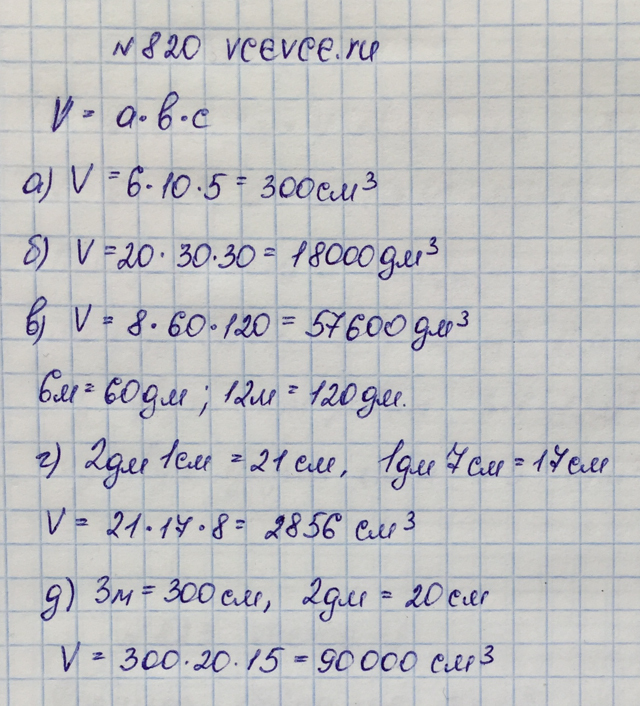 №820 vcevce.ru
V = а·в·с
а) V = 6·10·5 = 300см³
б) V = 20·30·30 = 18000дм³
в) V = 8·60·120 = 57600дм³
6м = 60дм ; 12м = 120дм.
г) 2дм 1см = 21см, 1дм 7см = 17см
V = 21·17·8 = 2856 см³
д) 3м = 300см, 2дм = 20см
V = 300·20·15 = 90000 см³